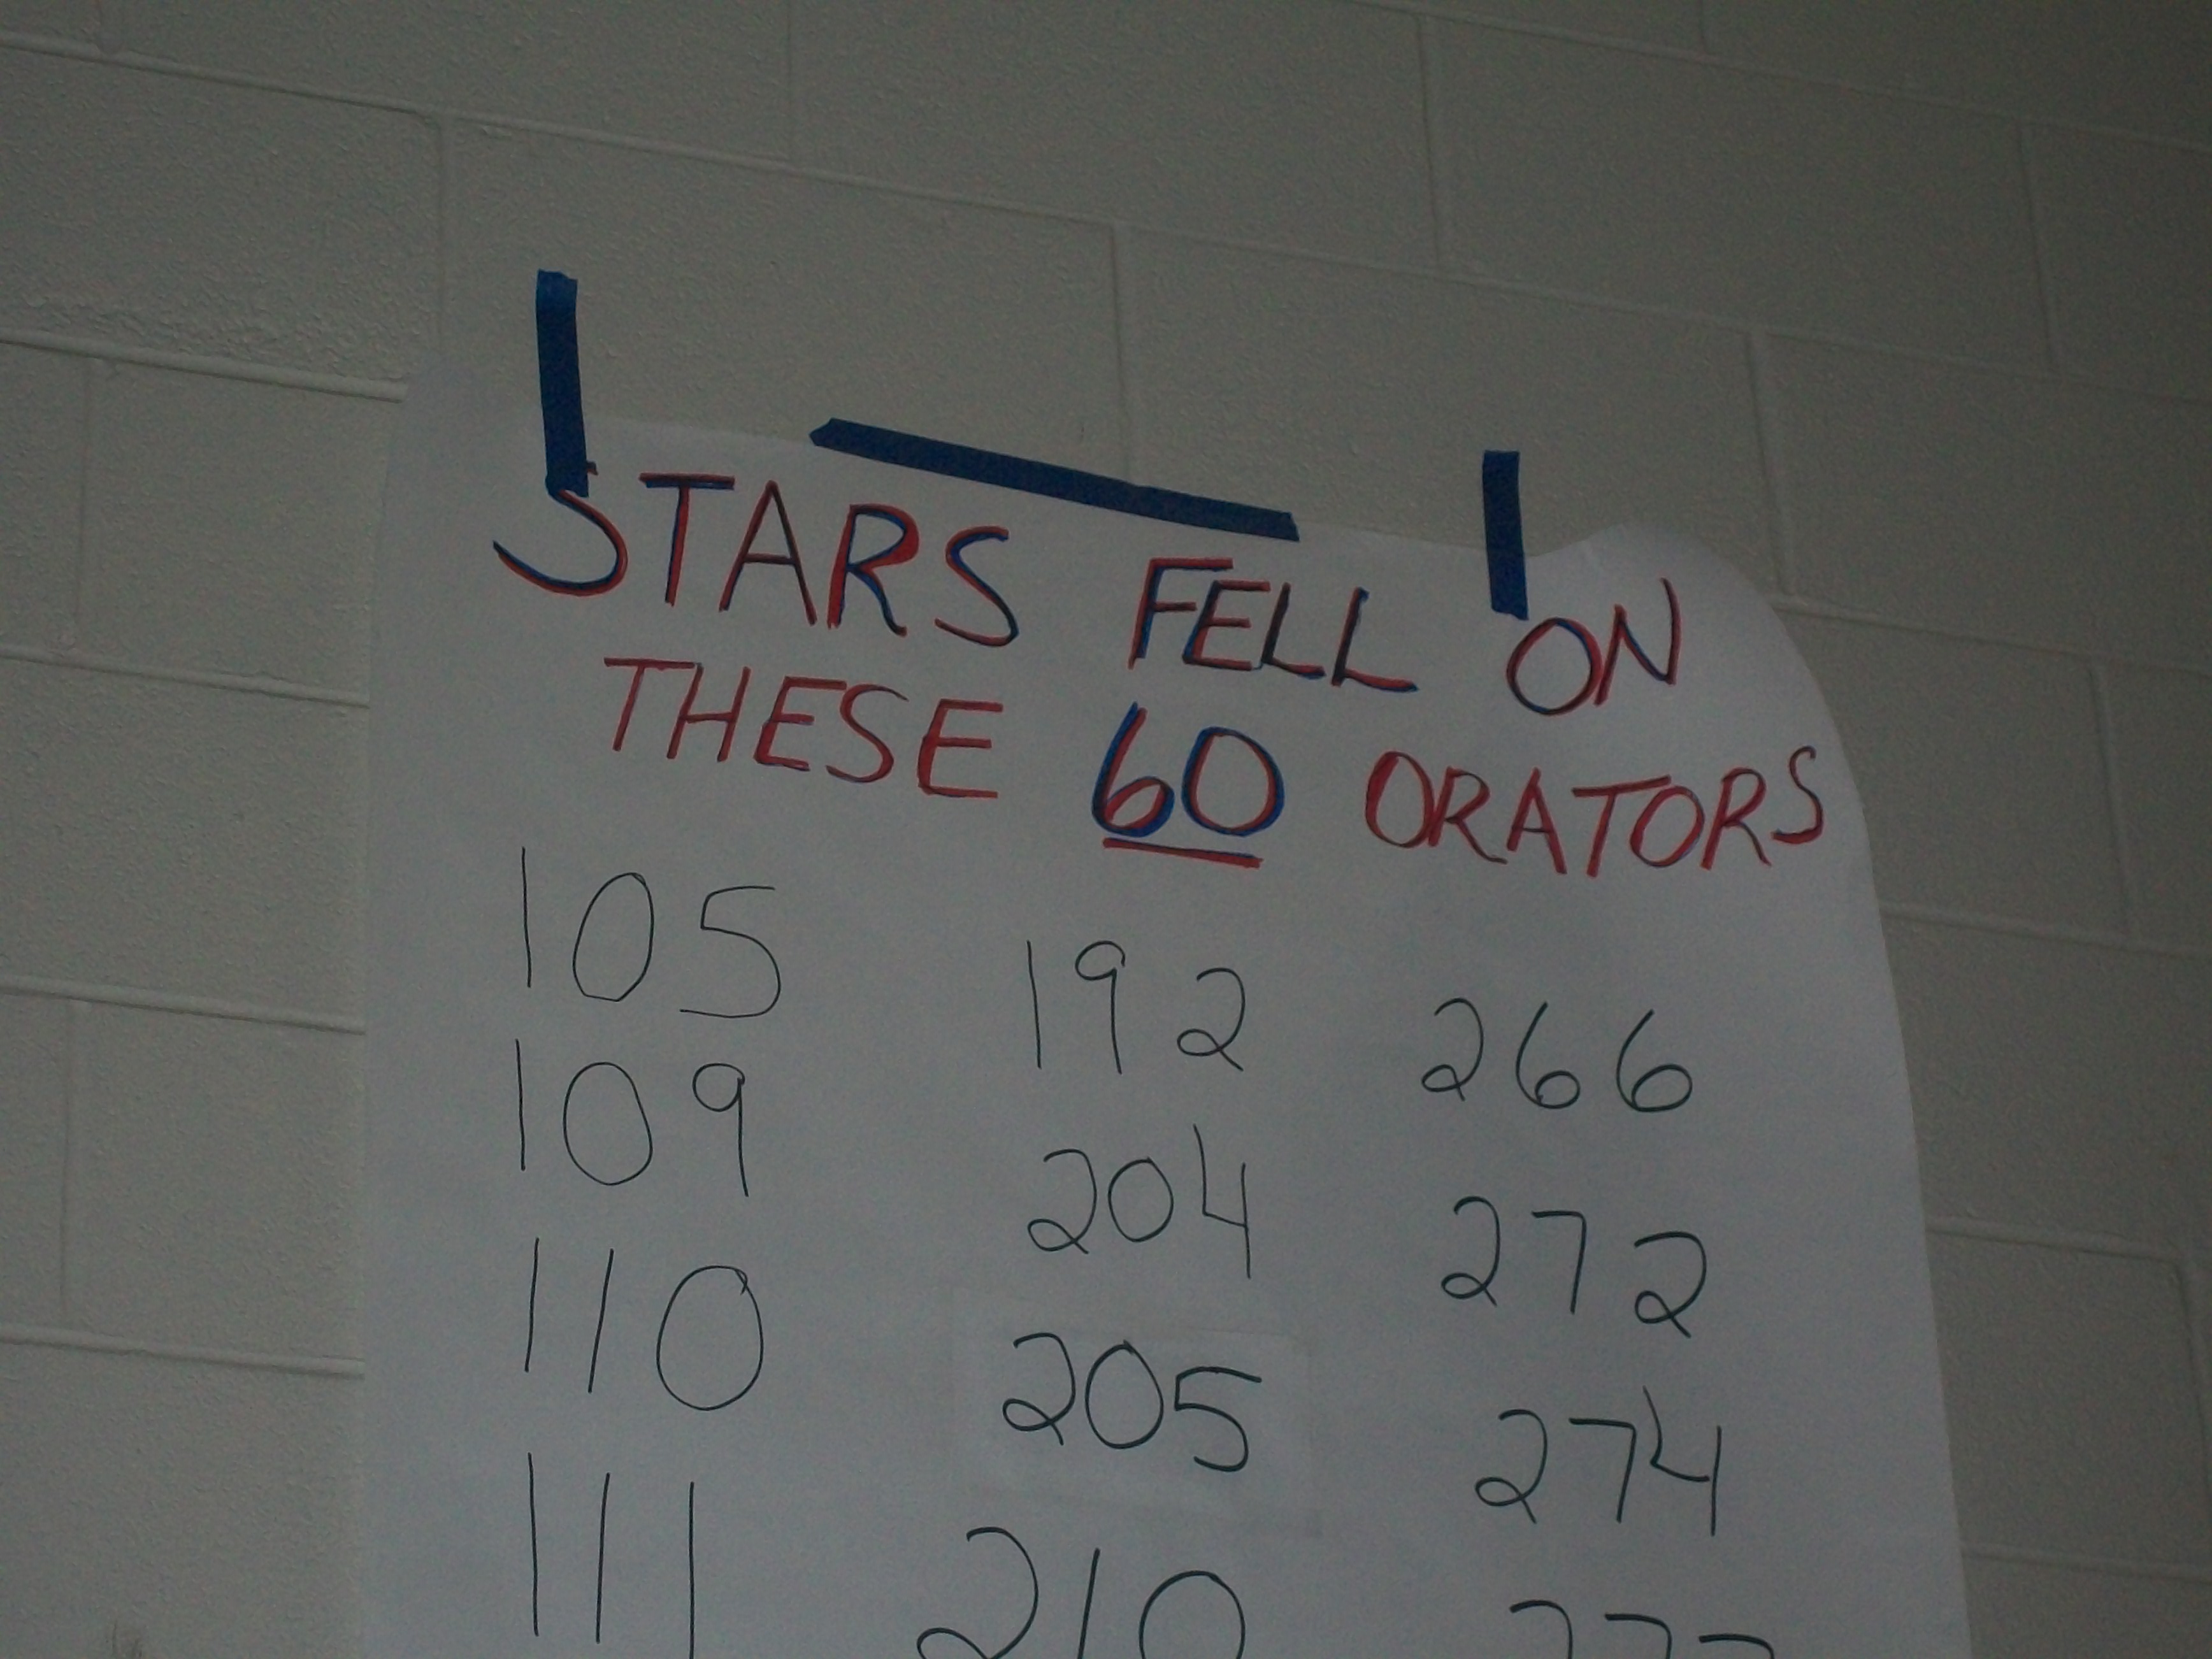 STARS FELL ON
THESE 60 ORATORS
105 192 266
109 204 272
110 205 274
111 210